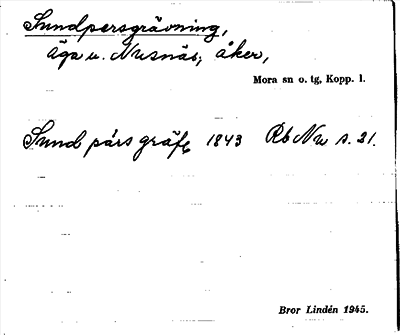 Sundpersgrävning,
äga u. Nusnäs, åker,
Mora sn o. tg, Kopp. l.
Sund pärs gräfn 1843 Rb Nu s. 21.
Bror Lindén 1945.